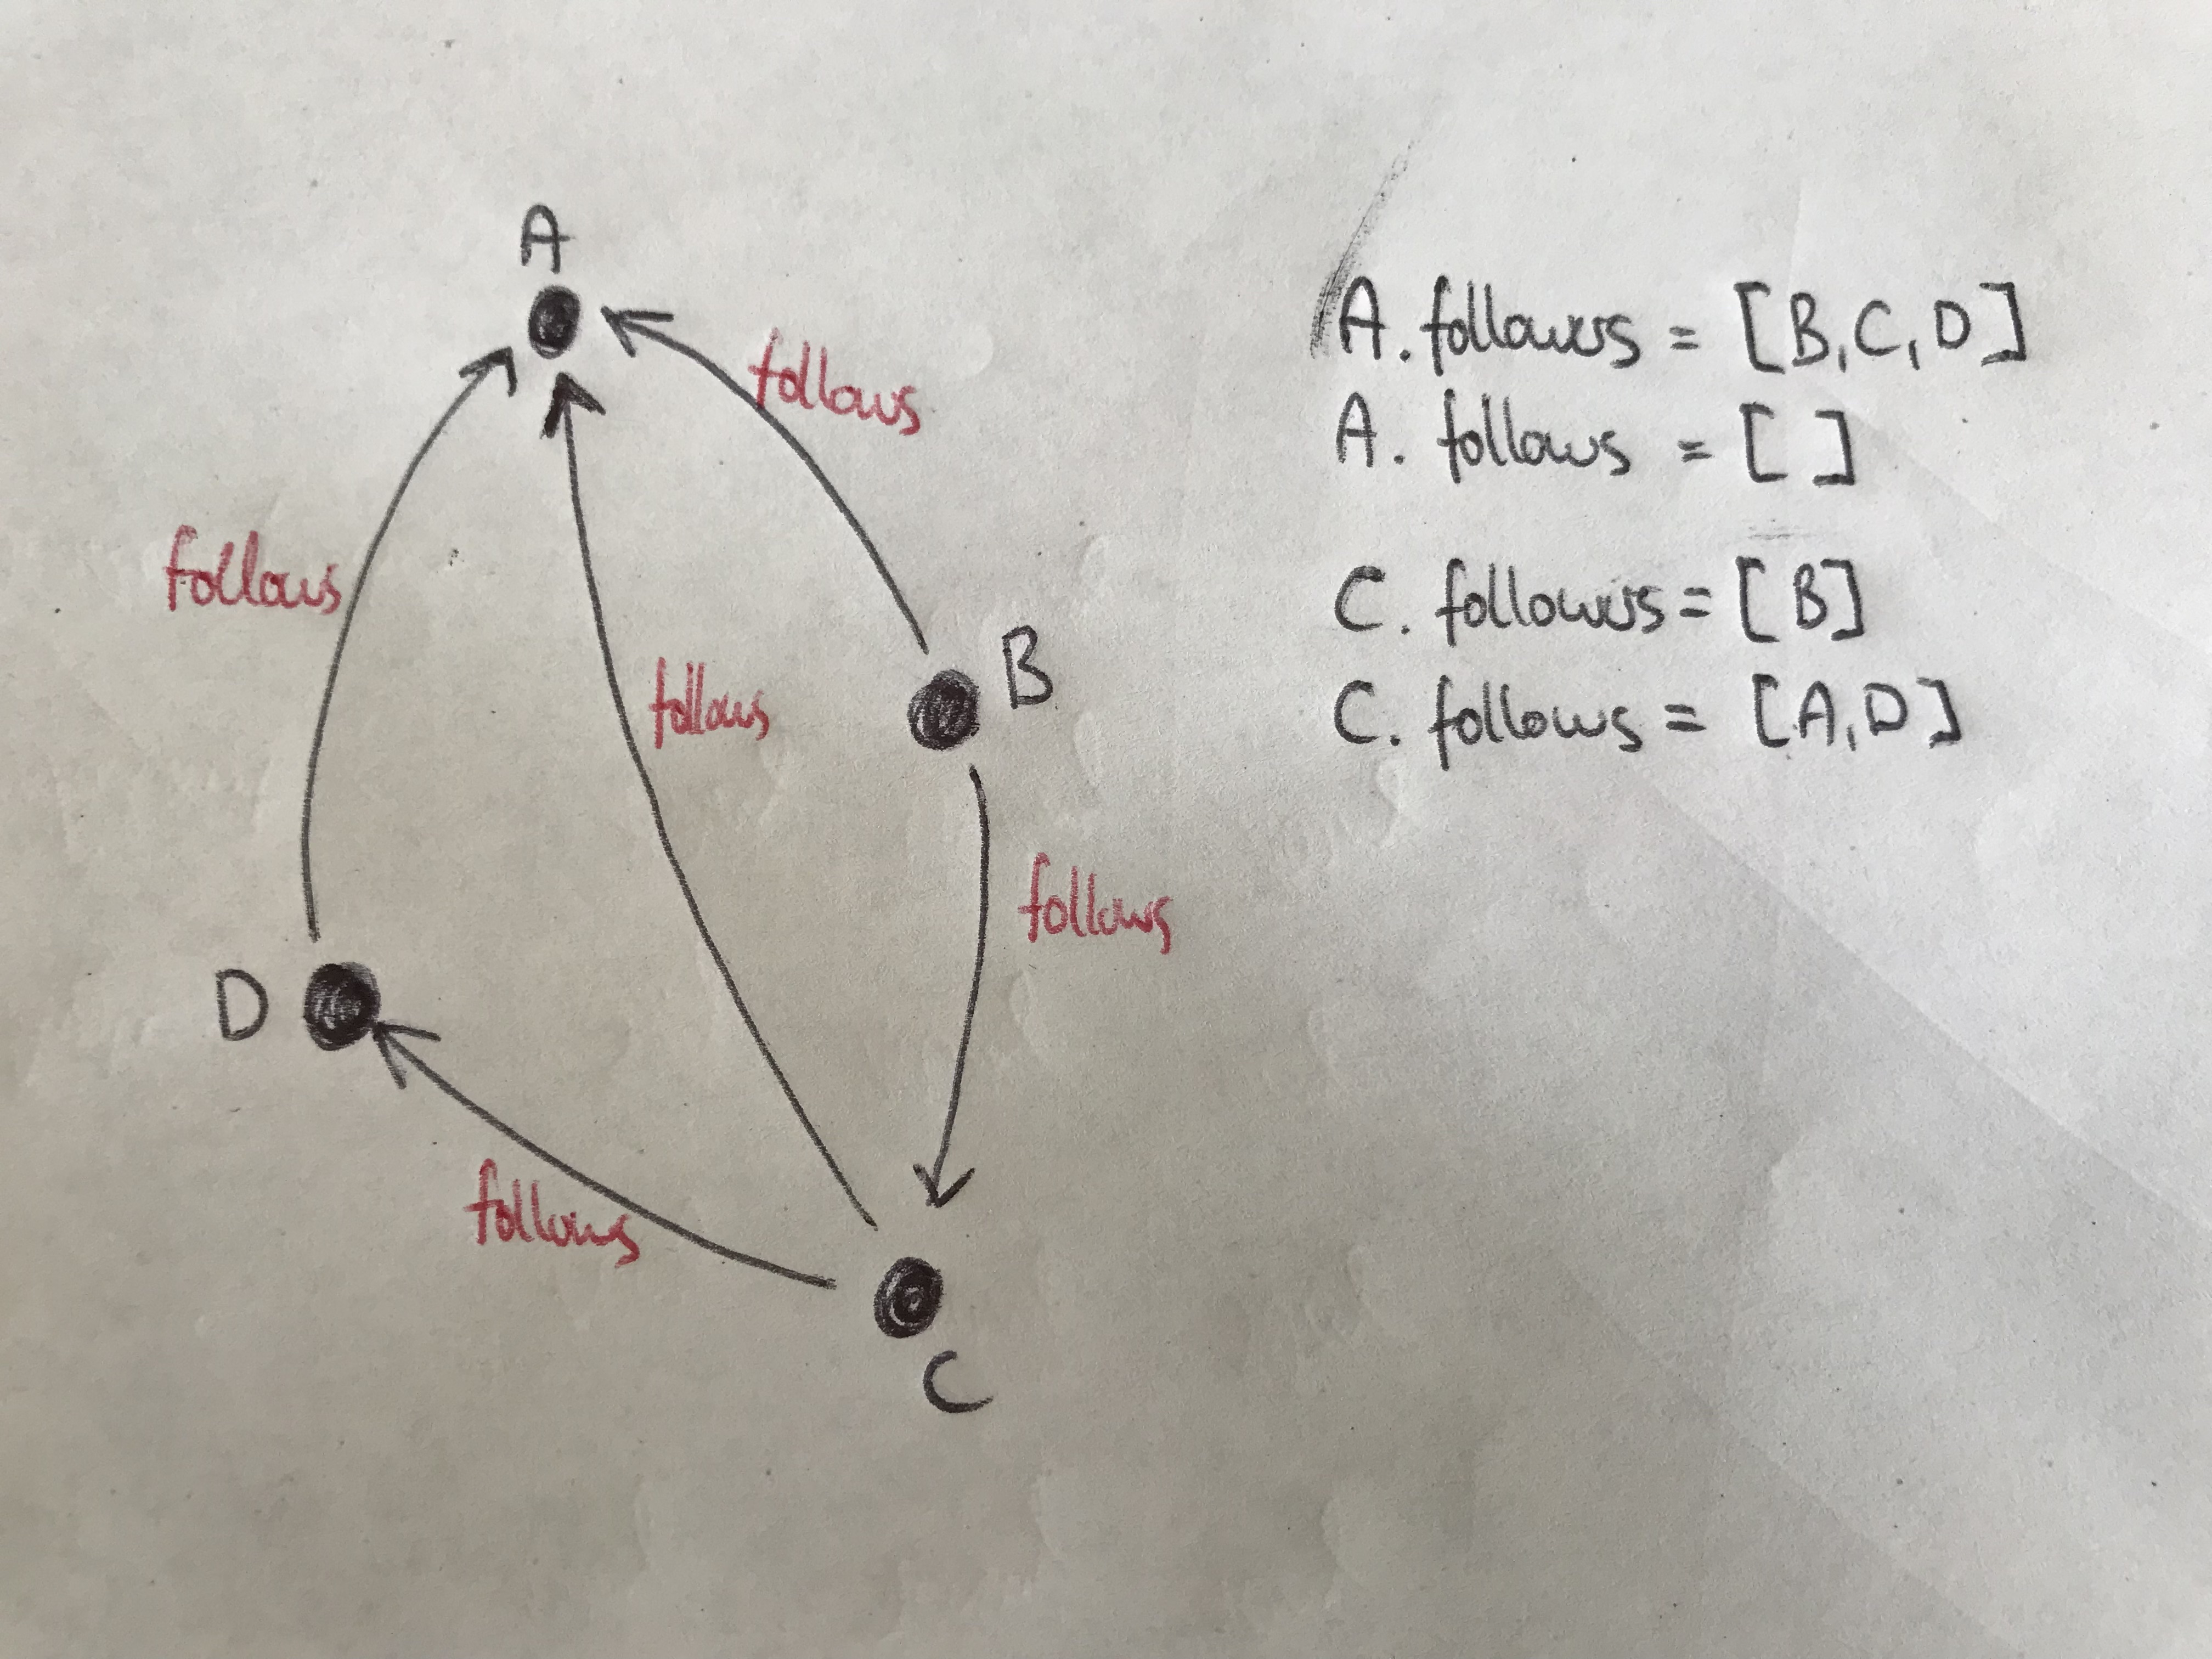 A
follows
follows
follows
follows
follows
B
D
C
A. followers = [B, C, D]
A. follows = [ ]
C. followers = [B]
C. follows = [A, D]